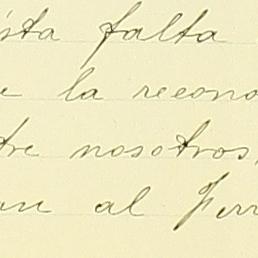 ista falta
e la recono
tre nosotros,
an al Ferr